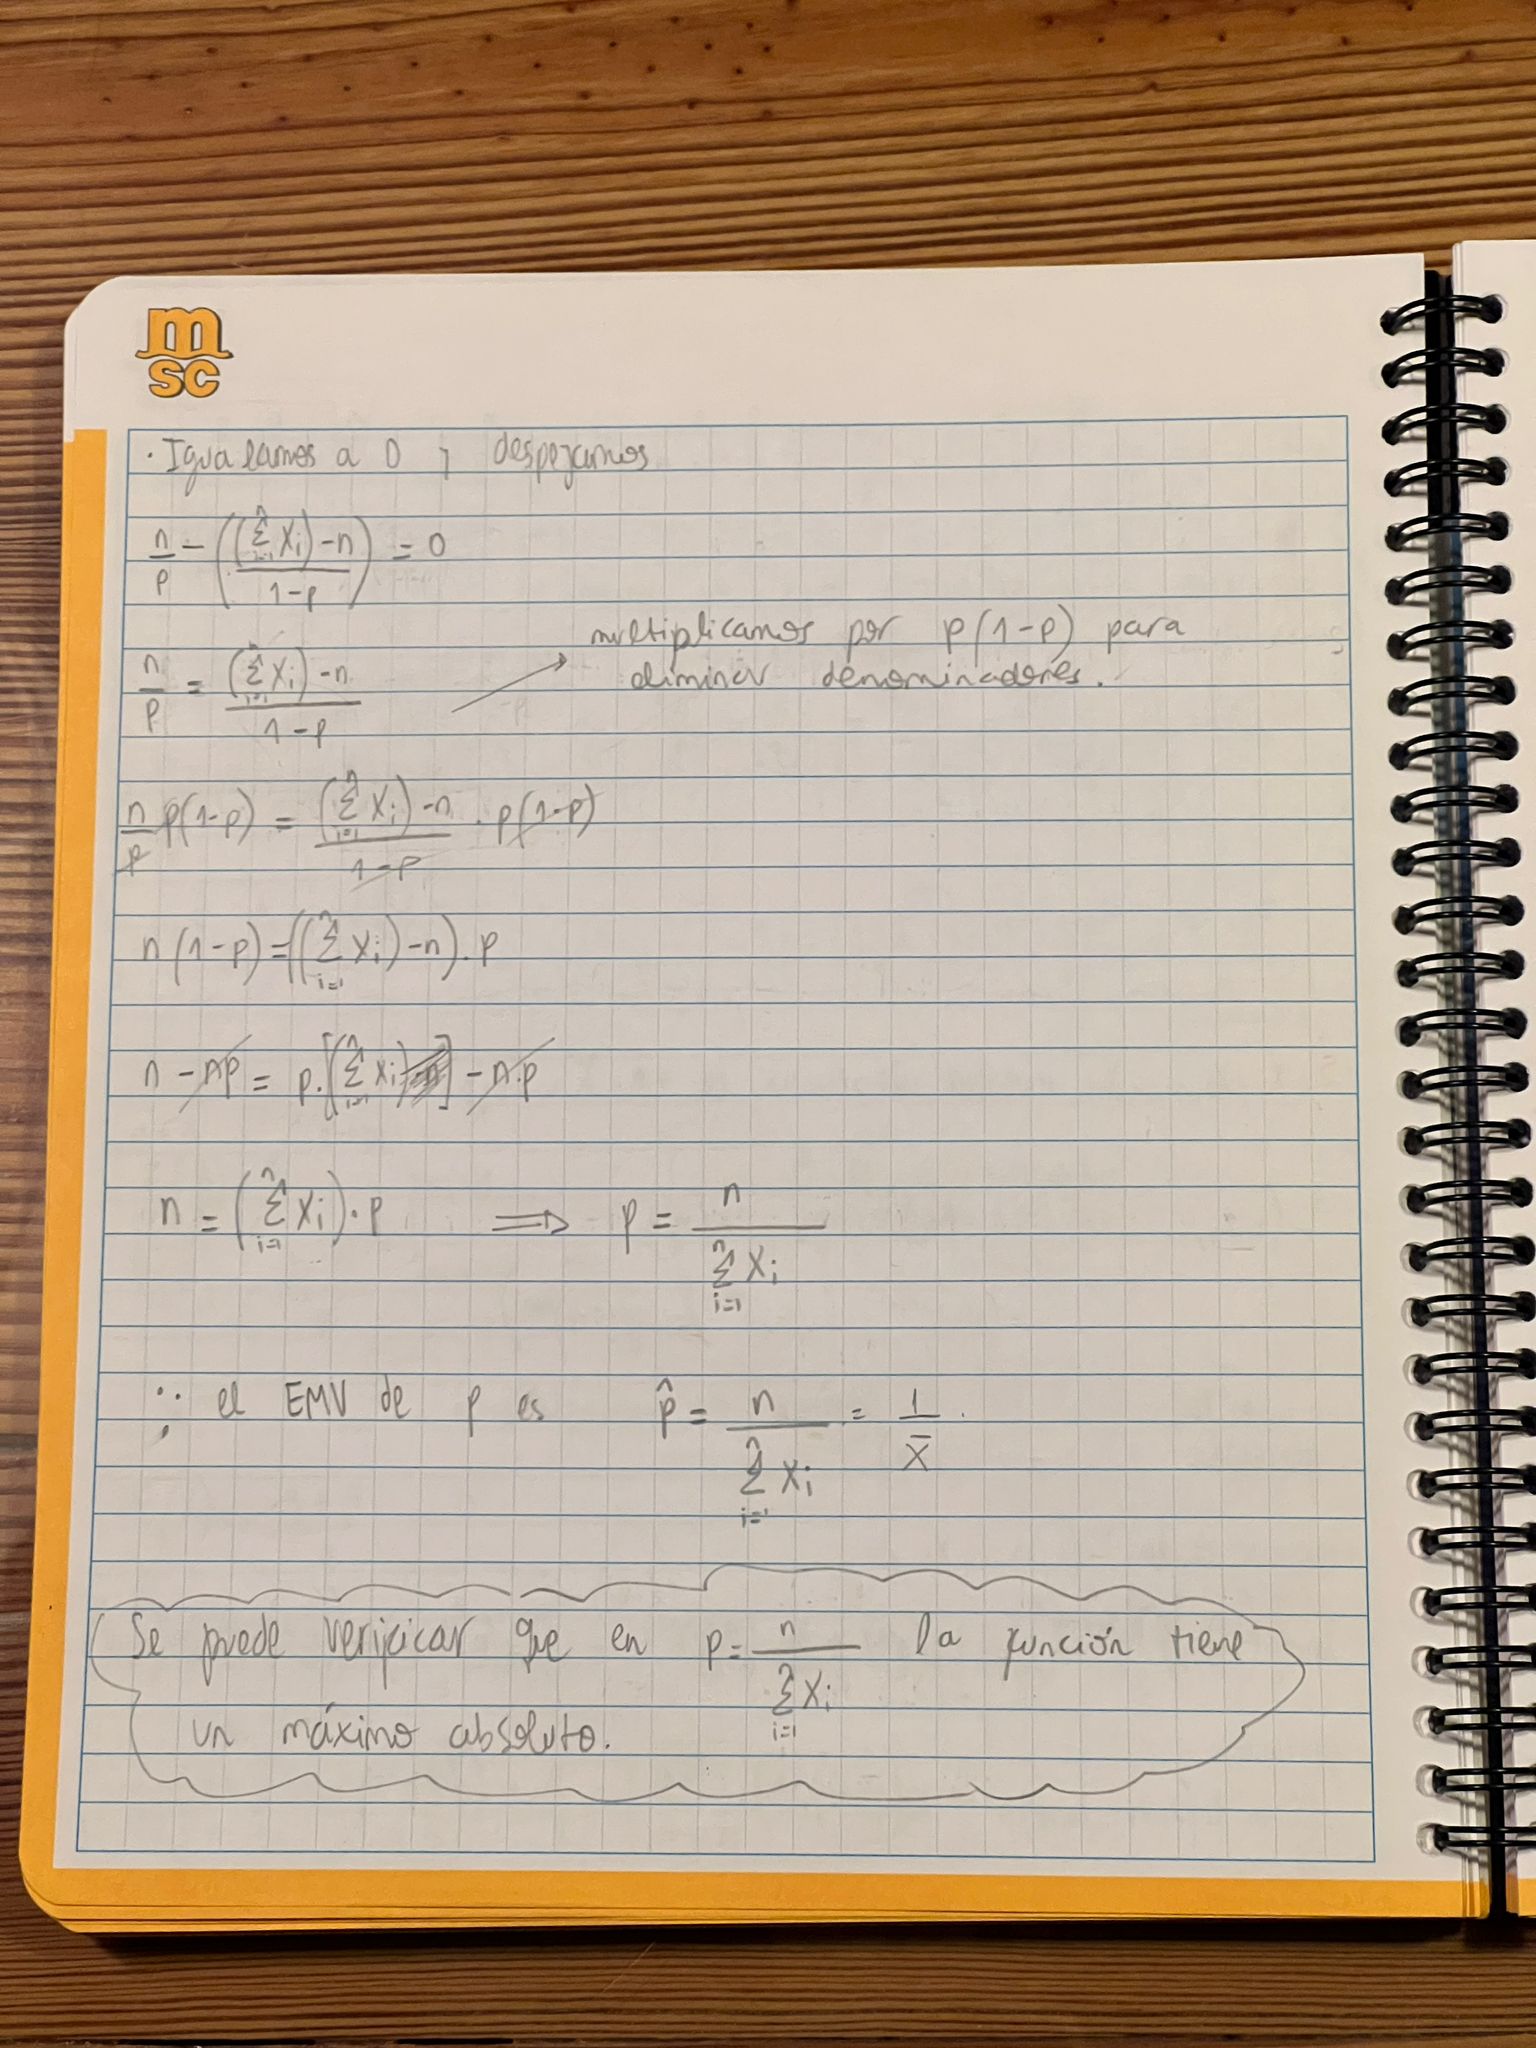 m
sc
· Igualamos a 0 y despejamos
n/p − (((∑_{i=1}^{n} Xi) − n)/(1−p)) = 0
n/p = ((∑_{i=1}^{n} Xi) − n)/(1−p)
multiplicamos por p(1−p) para
eliminar denominadores.
n/p p(1−p) = ((∑_{i=1}^{n} Xi) − n)/(1−p) · p(1−p)
n(1−p) = ((∑_{i=1}^{n} Xi) − n) · p
n − np = p·[(∑_{i=1}^{n} Xi) − n] − n·p
n = (∑_{i=1}^{n} Xi) · p ⟹ p = n/(∑_{i=1}^{n} Xi)
∴ el EMV de p es p̂ = n/(∑_{i=1}^{n} Xi) = 1/X̄.
Se puede verificar que en p = n/(∑_{i=1} Xi) la función tiene
un máximo absoluto.